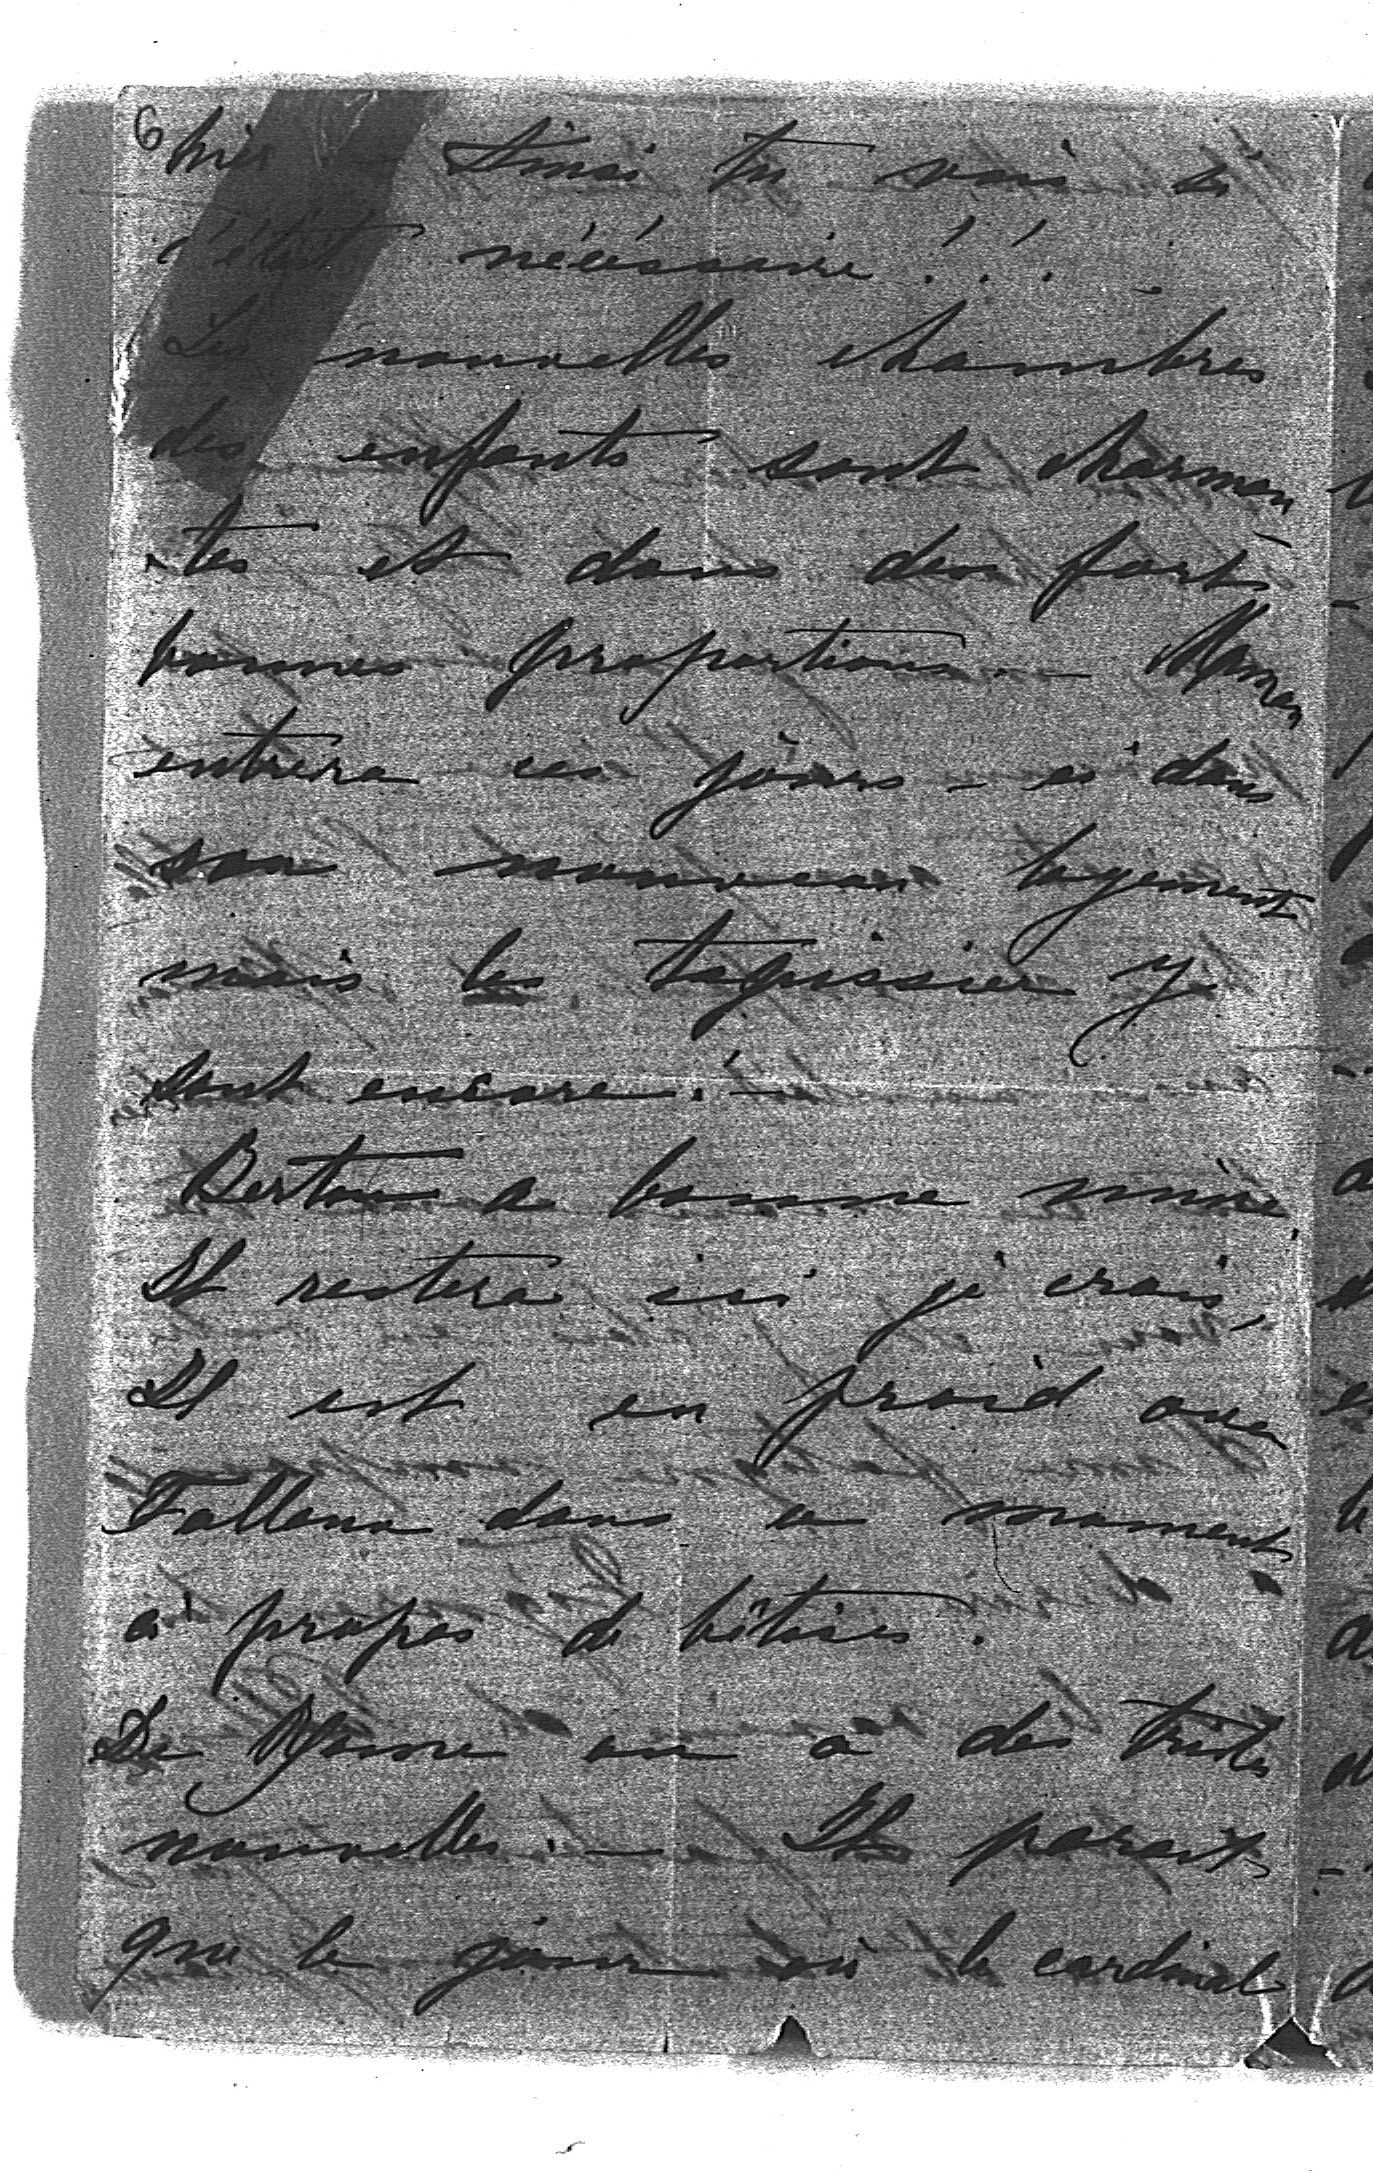 6 hier Ainsi tu vois si
c'était nécéssaire !!!
Les nouvelles chambres
des enfants sont charman
-tes et dans des forts
bonnes proportions. — Maman
entrera ces jours-ci dans
son nouveau logement
mais les tapissier y
sont encore. —
a bonne mine.
Il restera ici je crois,
Il est en froid avec
dans ce moment
à propos de bêtises.
De Rome on a des tristes
nouvelles. — Il parait
que le jour où le cardinal